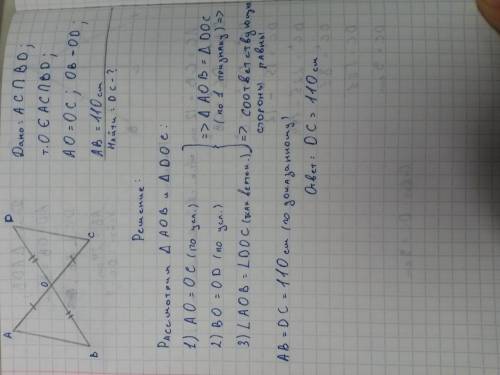 A
D
O
B
C
Дано: AC∩BD;
т.O ∈ AC∩BD;
AO=OC; OB=OD;
AB=110см
Найти: DC-?
Решение:
Рассмотрим △AOB и △DOC:
1) AO=OC (по усл.)
2) BO=OD (по усл.)
3) ∠AOB=∠DOC (как вертик.)
=> △AOB=△DOC
(по 1 признаку) =>
=> соответствующие
стороны равны
AB=DC=110см (по доказанному)
Ответ: DC=110см.